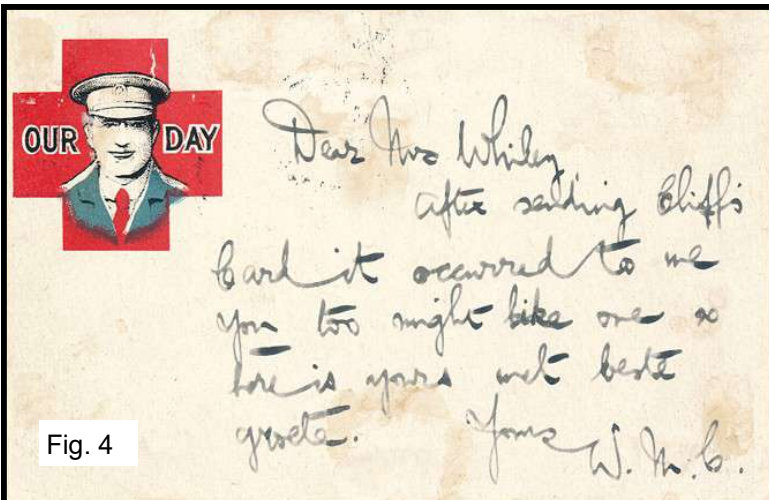 OUR DAY
Dear Mrs Whiley
After sending Cliff's
Card it occurred to me
you too might like one so
here is yours met beste
groete. Yours W. M. C.
Fig. 4